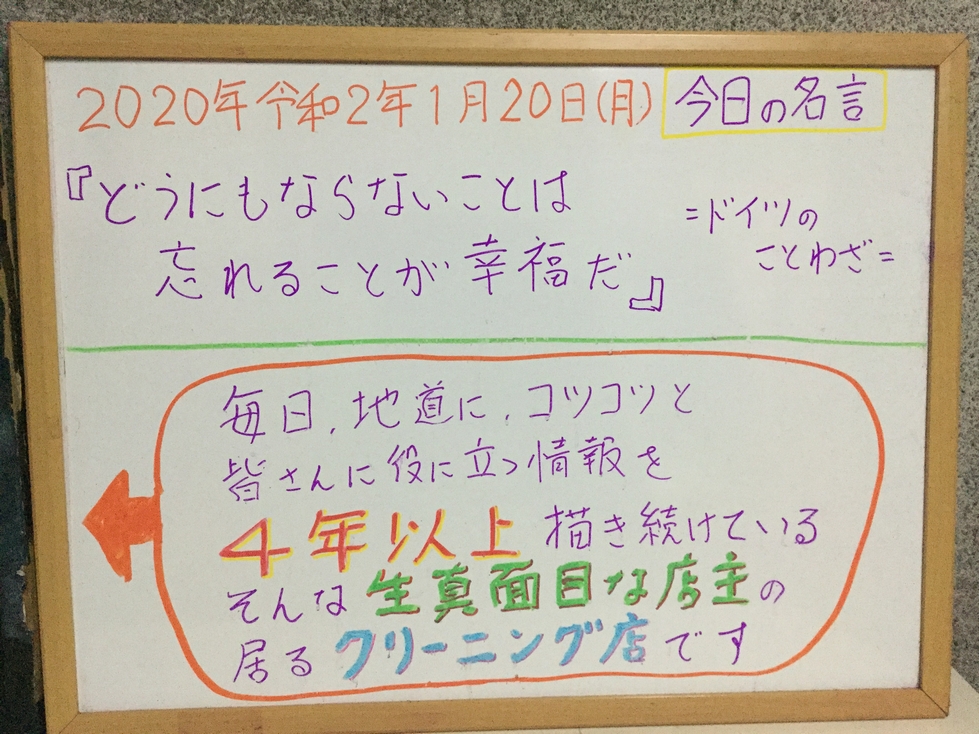 2020年令和2年1月20日(月) 今日の名言
『どうにもならないことは
忘れることが幸福だ』
=ドイツの
ことわざ=
毎日,地道に,コツコツと
皆さんに役に立つ情報を
4年以上描き続けている
そんな生真面目な店主の
居るクリーニング店です